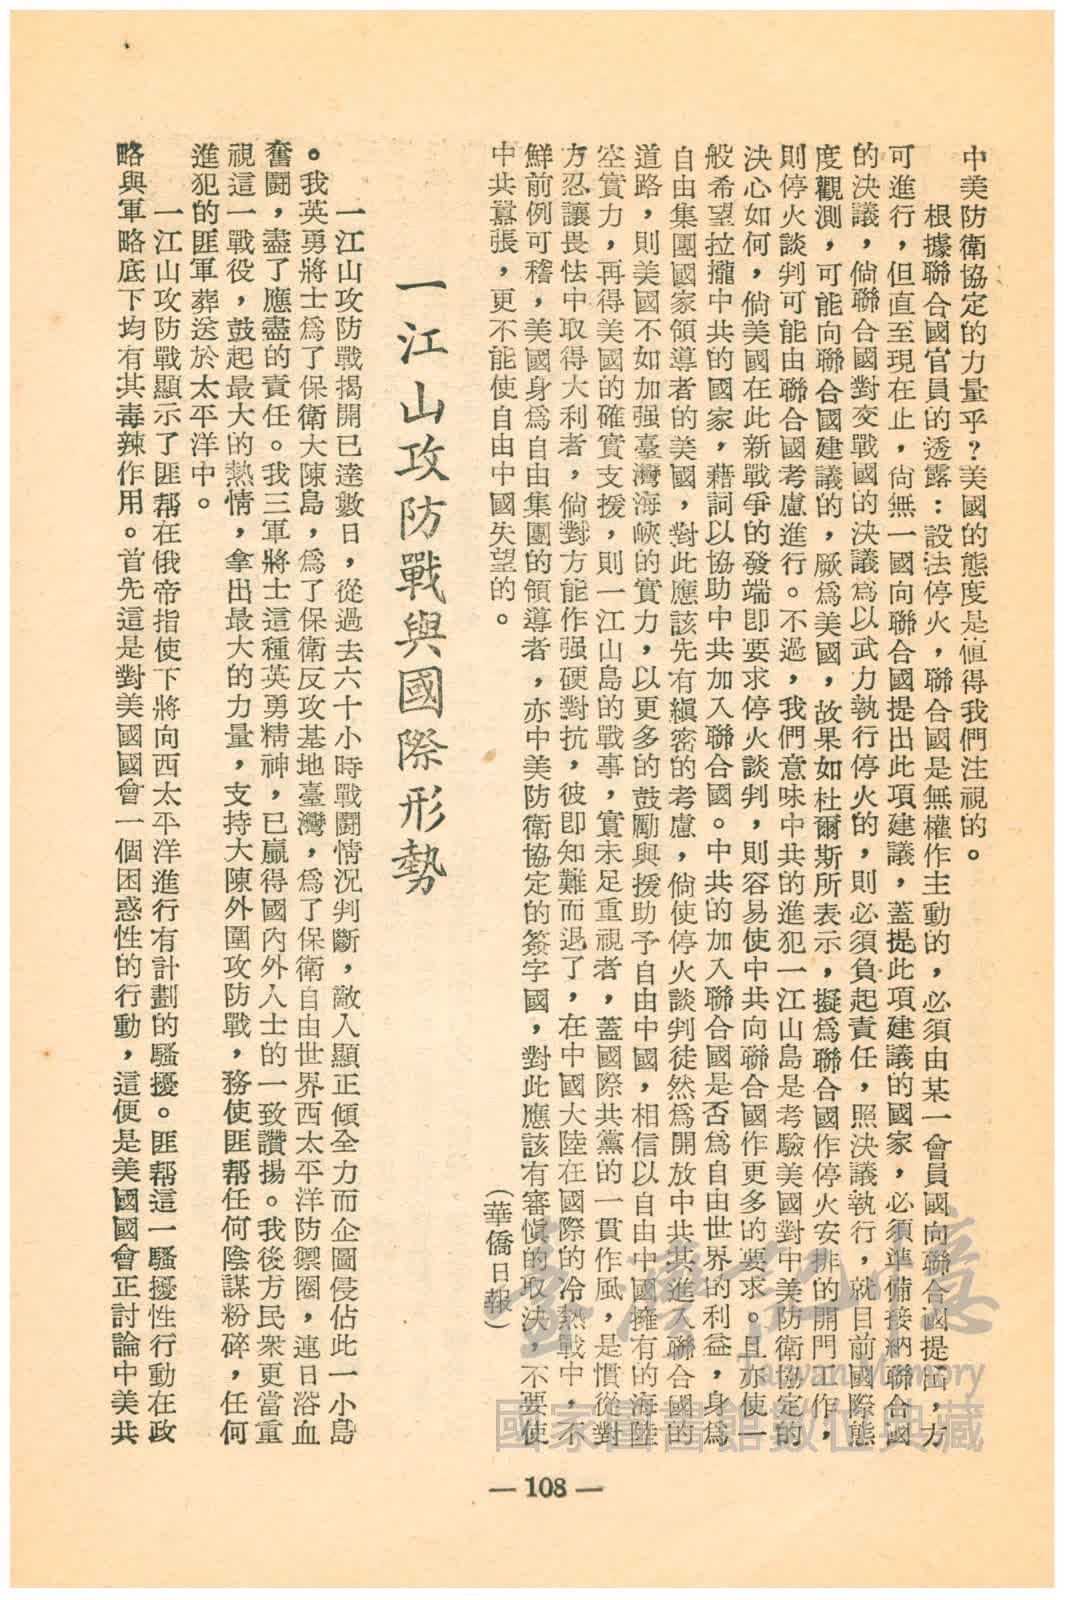 中美防衛協定的力量乎?美國的態度是値得我們注視的。
根據聯合國官員的透露:設法停火,聯合國是無權作主動的,必須由某一會員國向聯合國提出,方
可進行,但直至現在止,尙無一國向聯合國提出此項建議,蓋提此項建議的國家,必須準備接納聯合國
的決議,倘聯合國對交戰國的決議爲以武力執行停火的,則必須負起責任,照決議執行,就目前國際態
度觀測,可能向聯合國建議的,厥爲美國,故果如杜爾斯所表示,擬爲聯合國作停火安排的開門工作,
則停火談判可能由聯合國考慮進行。不過,我們意味中共的進犯一江山島是考驗美國對中美防衛協定的
決心如何,倘美國在此新戰爭的發端卽要求停火談判,則容易使中共向聯合國作更多的要求。且亦使一
般希望拉攏中共的國家,藉詞以協助中共加入聯合國。中共的加入聯合國是否爲自由世界的利益,身爲
自由集團國家領導者的美國,對此應該先有縝密的考慮,倘使停火談判徒然爲開放中共其進入聯合國的
道路,則美國不如加强臺灣海峽的實力,以更多的鼓勵與援助予自由中國,相信以自由中國擁有的海陸
空實力,再得美國的確實支援,則一江山島的戰事,實未足重視者,蓋國際共黨的一貫作風,是慣從對
方忍讓畏怯中取得大利者,倘對方能作强硬對抗,彼卽知難而退了,在中國大陸在國際的冷熱戰中,不
鮮前例可稽,美國身爲自由集團的領導者,亦中美防衛協定的簽字國,對此應該有審愼的取決,不要使
中共囂張,更不能使自由中國失望的。
(華僑日報)
一江山攻防戰與國際形勢
一江山攻防戰揭開已達數日,從過去六十小時戰鬪情況判斷,敵人顯正傾全力而企圖侵佔此一小島
。我英勇將士爲了保衛大陳島,爲了保衛反攻基地臺灣,爲了保衛自由世界西太平洋防禦圈,連日浴血
奮鬪,盡了應盡的責任。我三軍將士這種英勇精神,已贏得國內外人士的一致讚揚。我後方民衆更當重
視這一戰役,鼓起最大的熱情,拿出最大的力量,支持大陳外圍攻防戰,務使匪幫任何陰謀粉碎,任何
進犯的匪軍葬送於太平洋中。
一江山攻防戰顯示了匪幫在俄帝指使下將向西太平洋進行有計劃的騷擾。匪幫這一騷擾性行動在政
略與軍略底下均有其毒辣作用。首先這是對美國國會一個困惑性的行動,這便是美國國會正討論中美共
— 108 —
臺灣記憶
Taiwan Memory
國家圖書館數位典藏